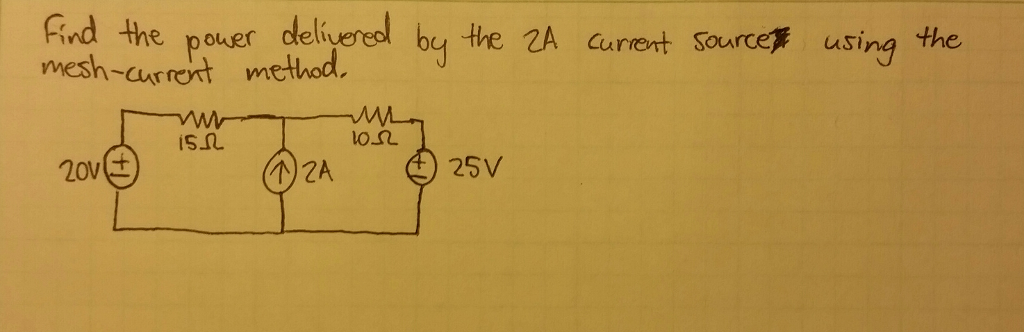 Find the power delivered by the 2A current source using the
mesh-current method.
15Ω
10Ω
20V
2A
25V